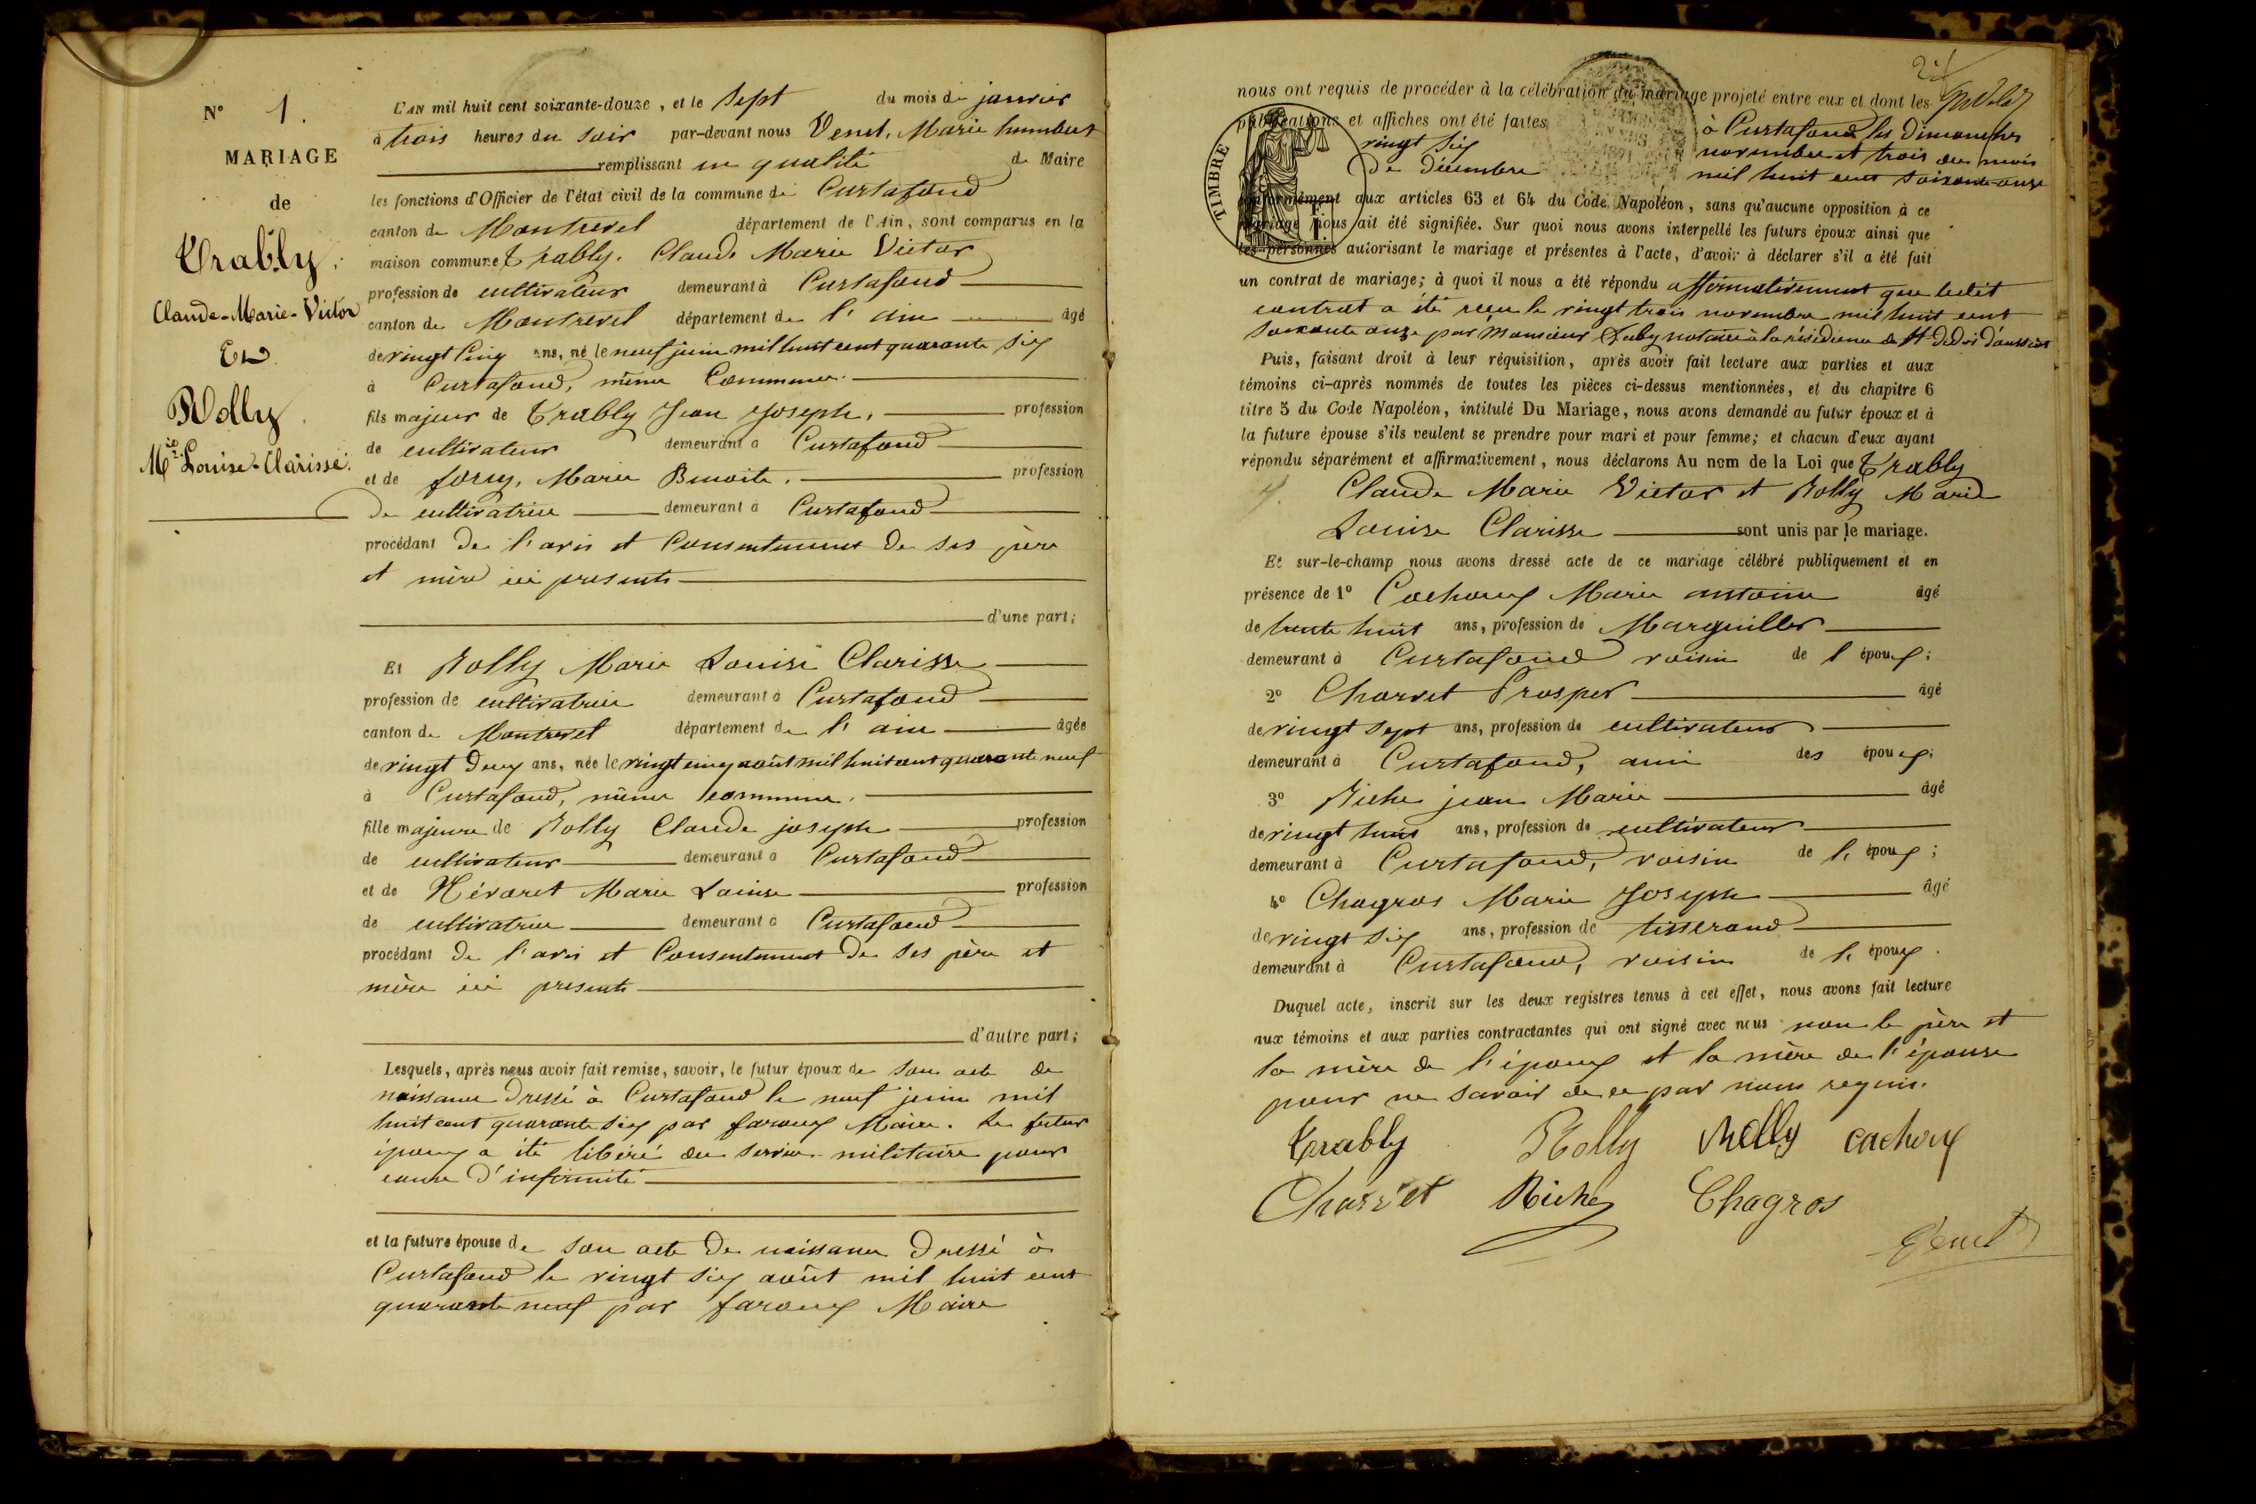 N° 1.
MARIAGE
de
Trably
Claude-Marie-Victor
Et
Rolly
Mie Louise-Clarisse.
L'AN mil huit cent soixante-douze, et le sept du mois de janvier
à trois heures du soir par-devant nous Venet, Marie humbert
remplissant en qualité de Maire
les fonctions d'Officier de l'état civil de la commune de Curtafond
canton de Montrevel département de l'Ain, sont comparus en la
maison commune Trably. Claude Marie Victor
profession de cultivateur demeurant à Curtafond
canton de Montrevel département de l'ain âgé
de vingt cinq ans, né le neuf juin mil huit cent quarante six
à Curtafond, même Commune.
fils majeur de Trably Jean Joseph, profession
de cultivateur demeurant à Curtafond
et de Marie Benoite, profession
De cultivatrice demeurant à Curtafond
procédant De l'avis et Consentement De ses père
et mère ici présents
d'une part;
Et Rolly Marie Louise Clarisse
profession de cultivatrice demeurant à Curtafond
canton de Montrevel département de l'ain âgée
de vingt Deux ans, née le vingt cinq août mil huit cent quarante neuf
à Curtafond, même commune.
fille majeure de Rolly Claude joseph profession
de cultivateur demeurant à Curtafond
et de Névoret Marie Louise profession
de cultivatrice demeurant à Curtafond
procédant De l'avis et Consentement De ses père et
mère ici présents
d'autre part;
Lesquels, après nous avoir fait remise, savoir, le futur époux de son acte de
naissance Dressé à Curtafond le neuf juin mil
huit cent quarante six par faroux Maire. Le futur
époux a été libéré du service militaire pour
cause d'infirmité
et la future épouse de son acte De naissance Dressé à
Curtafond le vingt six août mil huit cent
quarante neuf par faroux Maire
nous ont requis de procéder à la célébration du mariage projeté entre eux et dont les
publications et affiches ont été faites à Curtafond les Dimanches
vingt six novembre et trois du mois
De Décembre mil huit cent soixante onze
TIMBRE
conformément aux articles 63 et 64 du Code Napoléon, sans qu'aucune opposition à ce
mariage nous ait été signifiée. Sur quoi nous avons interpellé les futurs époux ainsi que
les personnes autorisant le mariage et présentes à l'acte, d'avoir à déclarer s'il a été fait
un contrat de mariage; à quoi il nous a été répondu affirmativement que ledit
contrat a été reçu le vingt trois novembre mil huit cent
soixante onze par Monsieur notaire à la résidence de St Didier d'aussiat
Puis, faisant droit à leur réquisition, après avoir fait lecture aux parties et aux
témoins ci-après nommés de toutes les pièces ci-dessus mentionnées, et du chapitre 6
titre 5 du Code Napoléon, intitulé Du Mariage, nous avons demandé au futur époux et à
la future épouse s'ils veulent se prendre pour mari et pour femme; et chacun d'eux ayant
répondu séparément et affirmativement, nous déclarons Au nom de la Loi que Trably
Claude Marie Victor et Rolly Marie
Louise Clarisse sont unis par le mariage.
Et sur-le-champ nous avons dressé acte de ce mariage célébré publiquement et en
présence de 1° Cachoux Marie antoine âgé
de trente huit ans, profession de Marguiller
demeurant à Curtafond voisin de l'époux;
2° Charvet Prosper âgé
de vingt sept ans, profession de cultivateur
demeurant à Curtafond, ami des époux;
3° Riche jean Marie âgé
de vingt huit ans, profession de cultivateur
demeurant à Curtafond, voisin de l'époux;
4° Chagros Marie Joseph âgé
de vingt six ans, profession de tisserand
demeurant à Curtafond, voisin de l'époux.
Duquel acte, inscrit sur les deux registres tenus à cet effet, nous avons fait lecture
aux témoins et aux parties contractantes qui ont signé avec nous non le père et
la mère de l'époux et la mère de l'épouse
pour ne savoir de ce par nous requis.
Trably Rolly Rolly cachoux
Charvet Riche Chagros
Venet